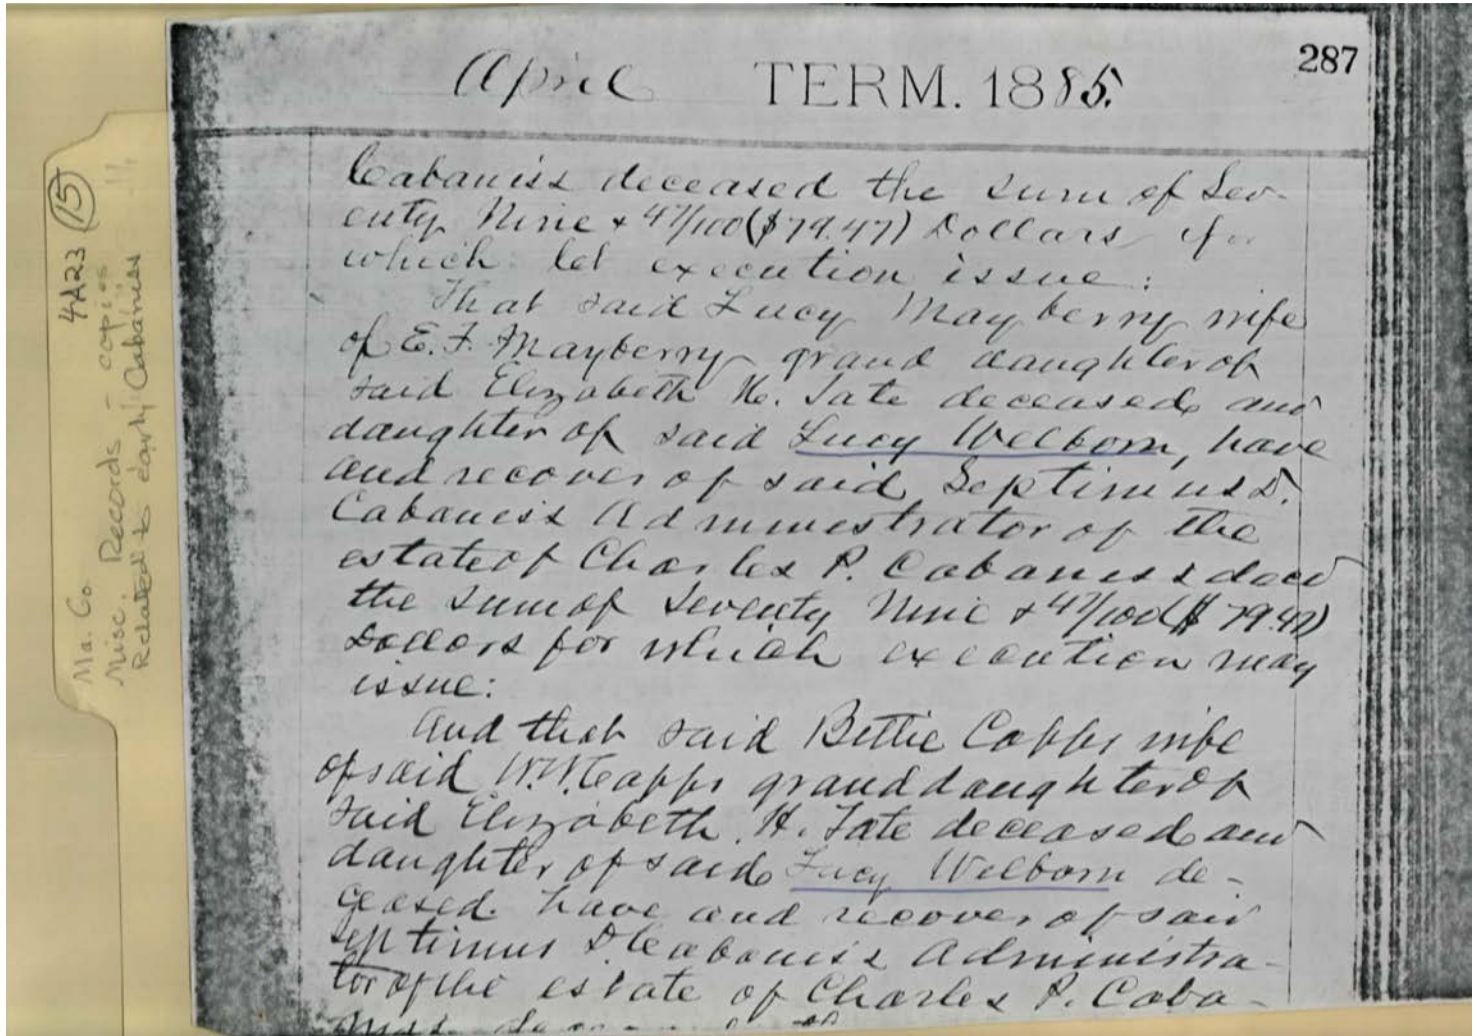 287
April TERM. 1885.
Cabaniss deceased the sum of Sev-
enty Nine & 47/100 ($79.47) Dollars for
which let execution issue:
That said Lucy Mayberry wife
of E. F. Mayberry grand daughter of
said Elizabeth H. Tate deceased and
daughter of said Lucy Welborn, have
and recover of said Septimus D.
Cabaniss Administrator of the
estate of Charles P. Cabaniss decd
the sum of Seventy Nine & 47/100 ($79.47)
Dollars for which execution may
issue:
And that said Bettie Capps wife
of said W.W. Capps granddaughter of
said Elizabeth H. Tate deceased and
daughter of said Lucy Welborn de-
ceased have and recover of said
Septimus D. Cabaniss Administra-
tor of the estate of Charles P. Caba-
4A23 (15)
Ma. Co.
Misc. Records - copies
Related to early Cabaniss